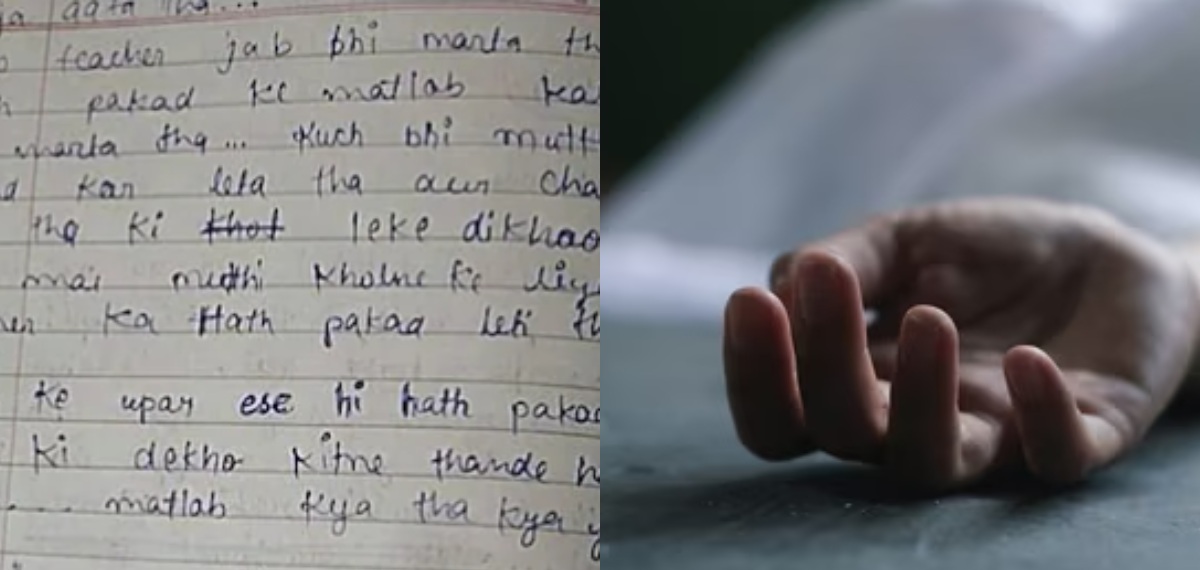 aata tha...
teacher jab bhi marta th
pakad ke matlab ka
marta tha... Kuch bhi mutt
kar leta tha aur cha
tha ki thot leke dikhao
mai mutthi kholne ke liy
ka Hath pakad leti
ke upar ese hi hath pakad
ki dekho kitne thande h
.... matlab kya tha kya y